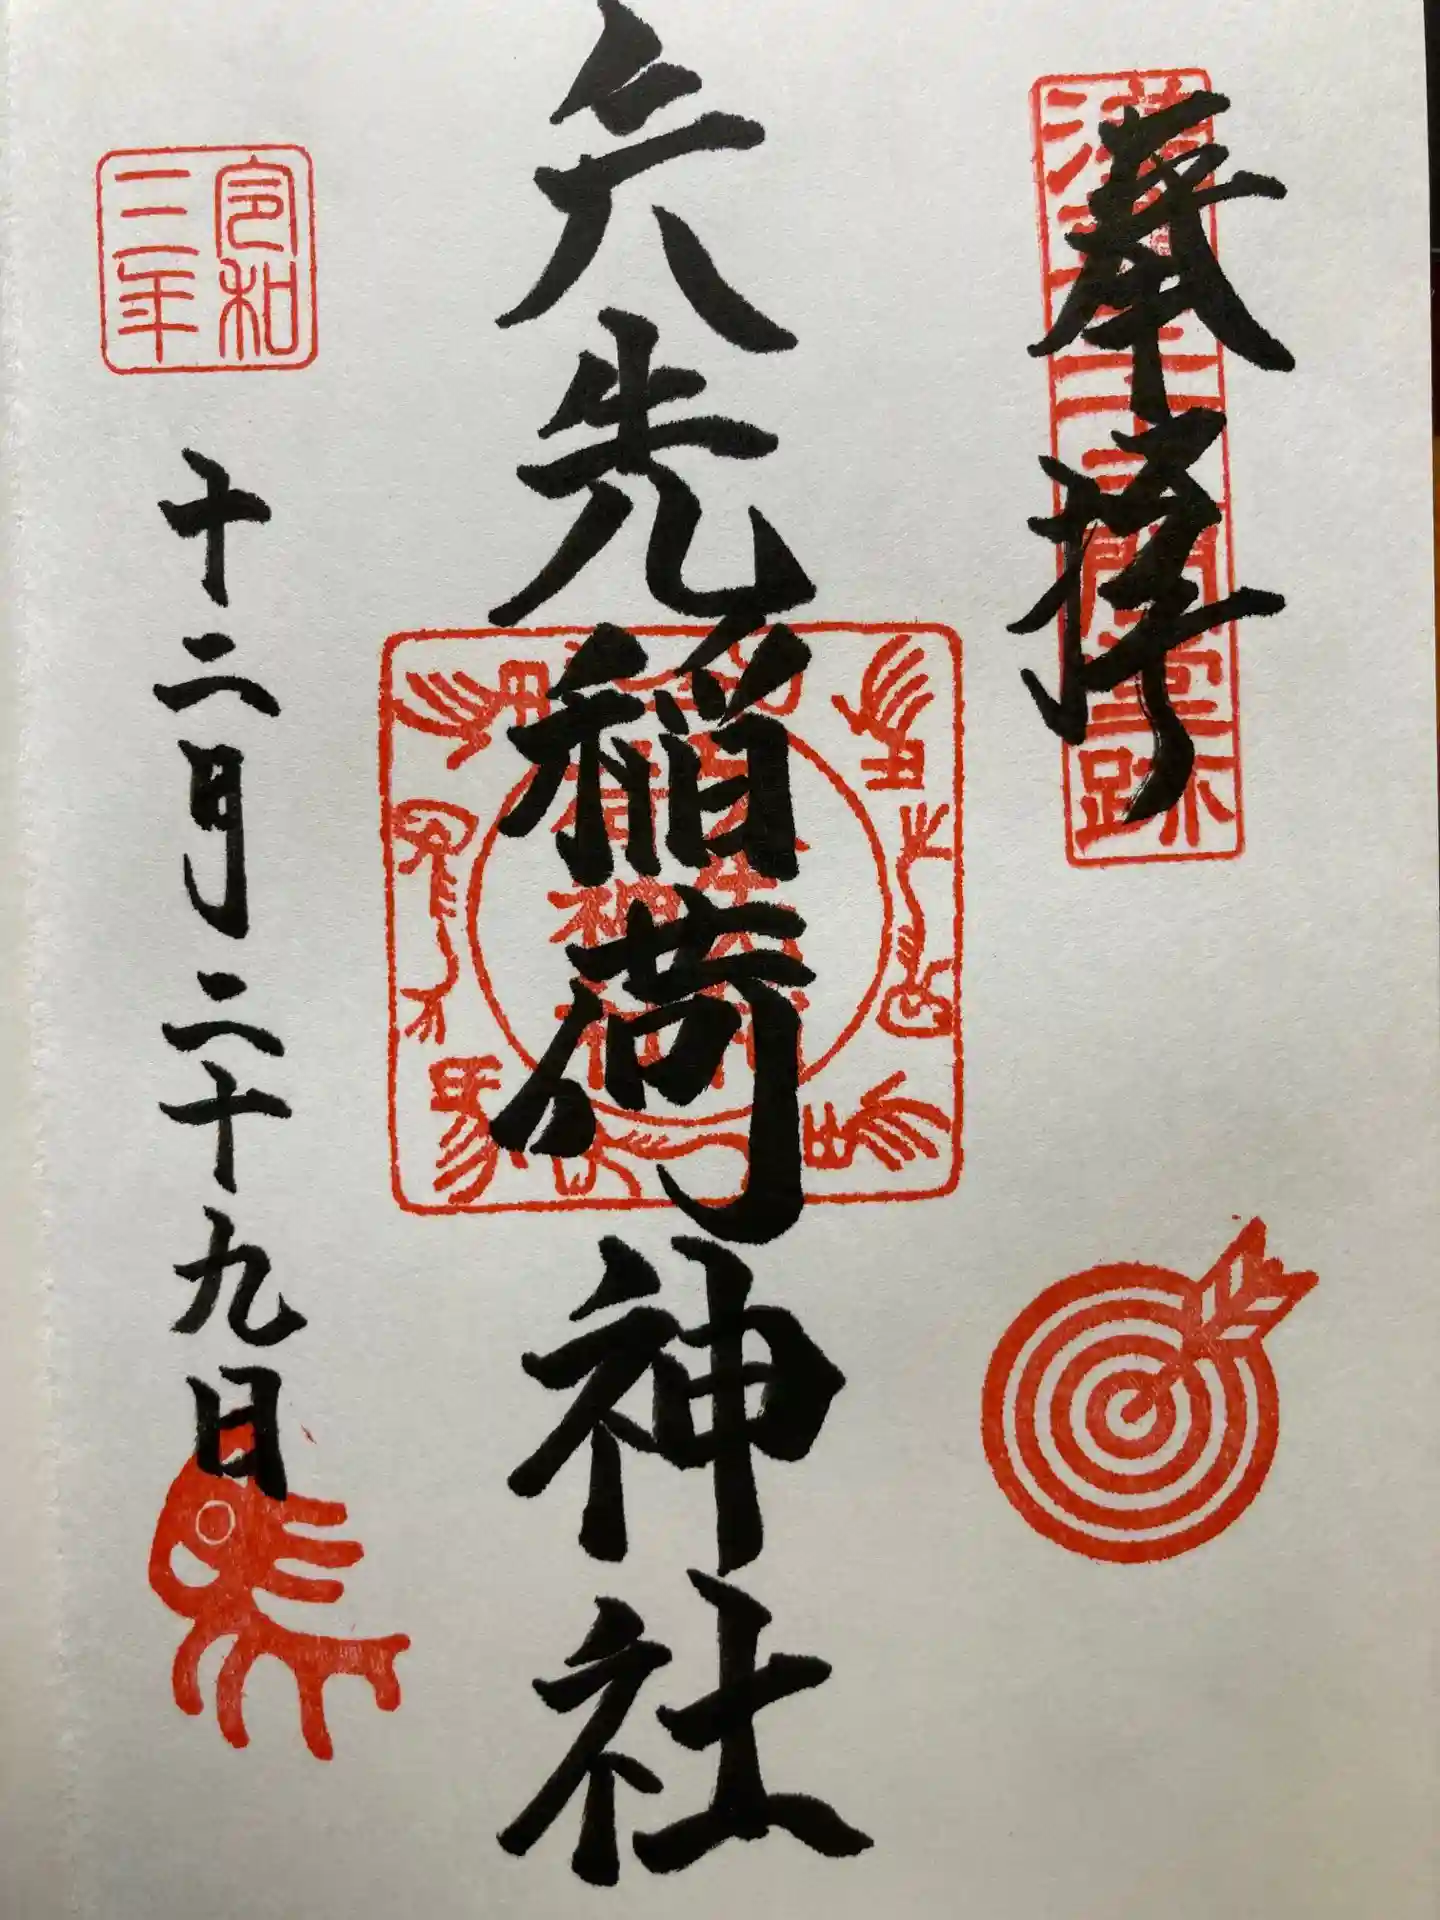 奉拝
三十三間堂跡
矢先稲荷神社
令和
三年
十二月二十九日